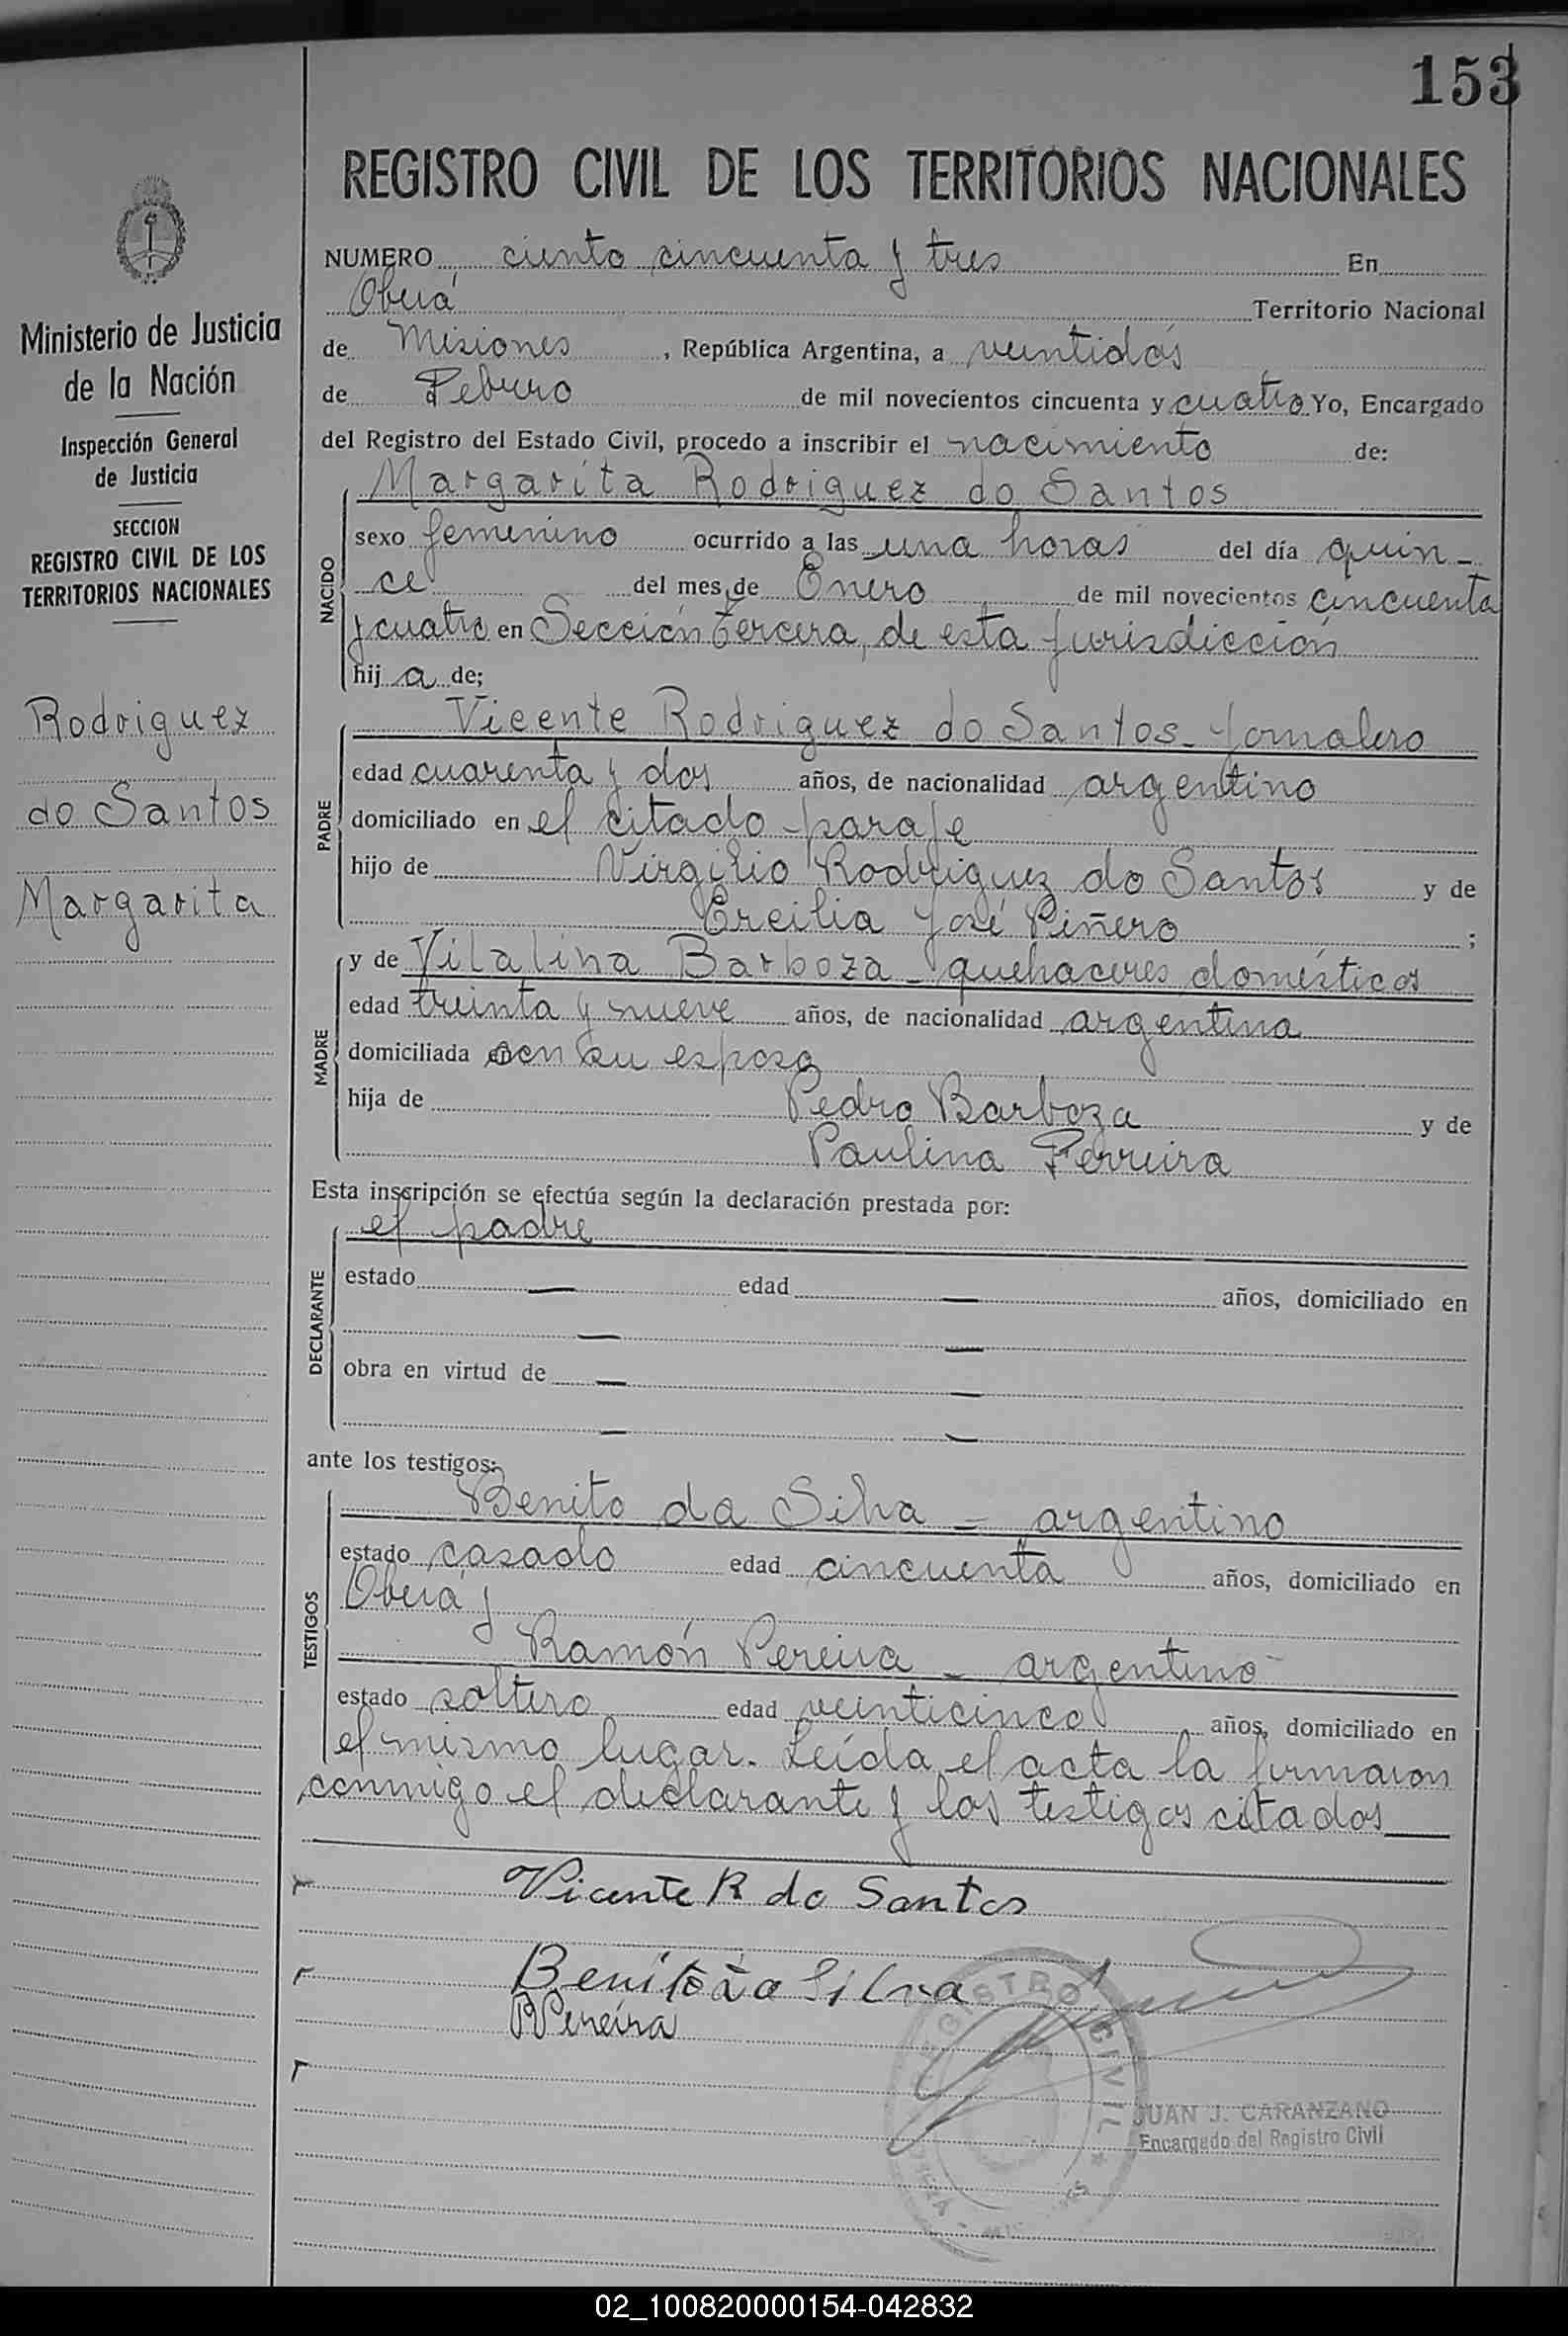 153
REGISTRO CIVIL DE LOS TERRITORIOS NACIONALES
Ministerio de Justicia
de la Nación
Inspección General
de Justicia
SECCION
REGISTRO CIVIL DE LOS
TERRITORIOS NACIONALES
Rodriguez
do Santos
Margarita
NUMERO ciento cincuenta y tres En
Oberá Territorio Nacional
de Misiones, República Argentina, a veintidós
de Febrero de mil novecientos cincuenta y cuatro Yo, Encargado
del Registro del Estado Civil, procedo a inscribir el nacimiento de:
NACIDO
Margarita Rodriguez do Santos
sexo femenino ocurrido a las una horas del día quin-
ce del mes de Enero de mil novecientos cincuenta
y cuatro en Sección tercera, de esta jurisdicción
hij a de;
PADRE
Vicente Rodriguez do Santos - jornalero
edad cuarenta y dos años, de nacionalidad argentino
domiciliado en el citado paraje
hijo de Virgilio Rodriguez do Santos y de
Ercilia José Piñero ;
MADRE
y de Vilalina Barboza - quehaceres domésticos
edad treinta y nueve años, de nacionalidad argentina
domiciliada con su esposo
hija de Pedro Barboza y de
Paulina Ferreira
Esta inscripción se efectúa según la declaración prestada por:
DECLARANTE
el padre
estado — edad — años, domiciliado en
— —
obra en virtud de — —
— —
ante los testigos:
TESTIGOS
Benito da Silva - argentino
estado casado edad cincuenta años, domiciliado en
Oberá y
Ramón Pereira - argentino
estado soltero edad veinticinco años, domiciliado en
el mismo lugar. Leída el acta la firmaron
conmigo el declarante y los testigos citados
Vicente R do Santos
Benito da Silva
R Pereira
REGISTRO CIVIL
JUAN J. CARANZANO
Encargado del Registro Civil
02_100820000154-042832